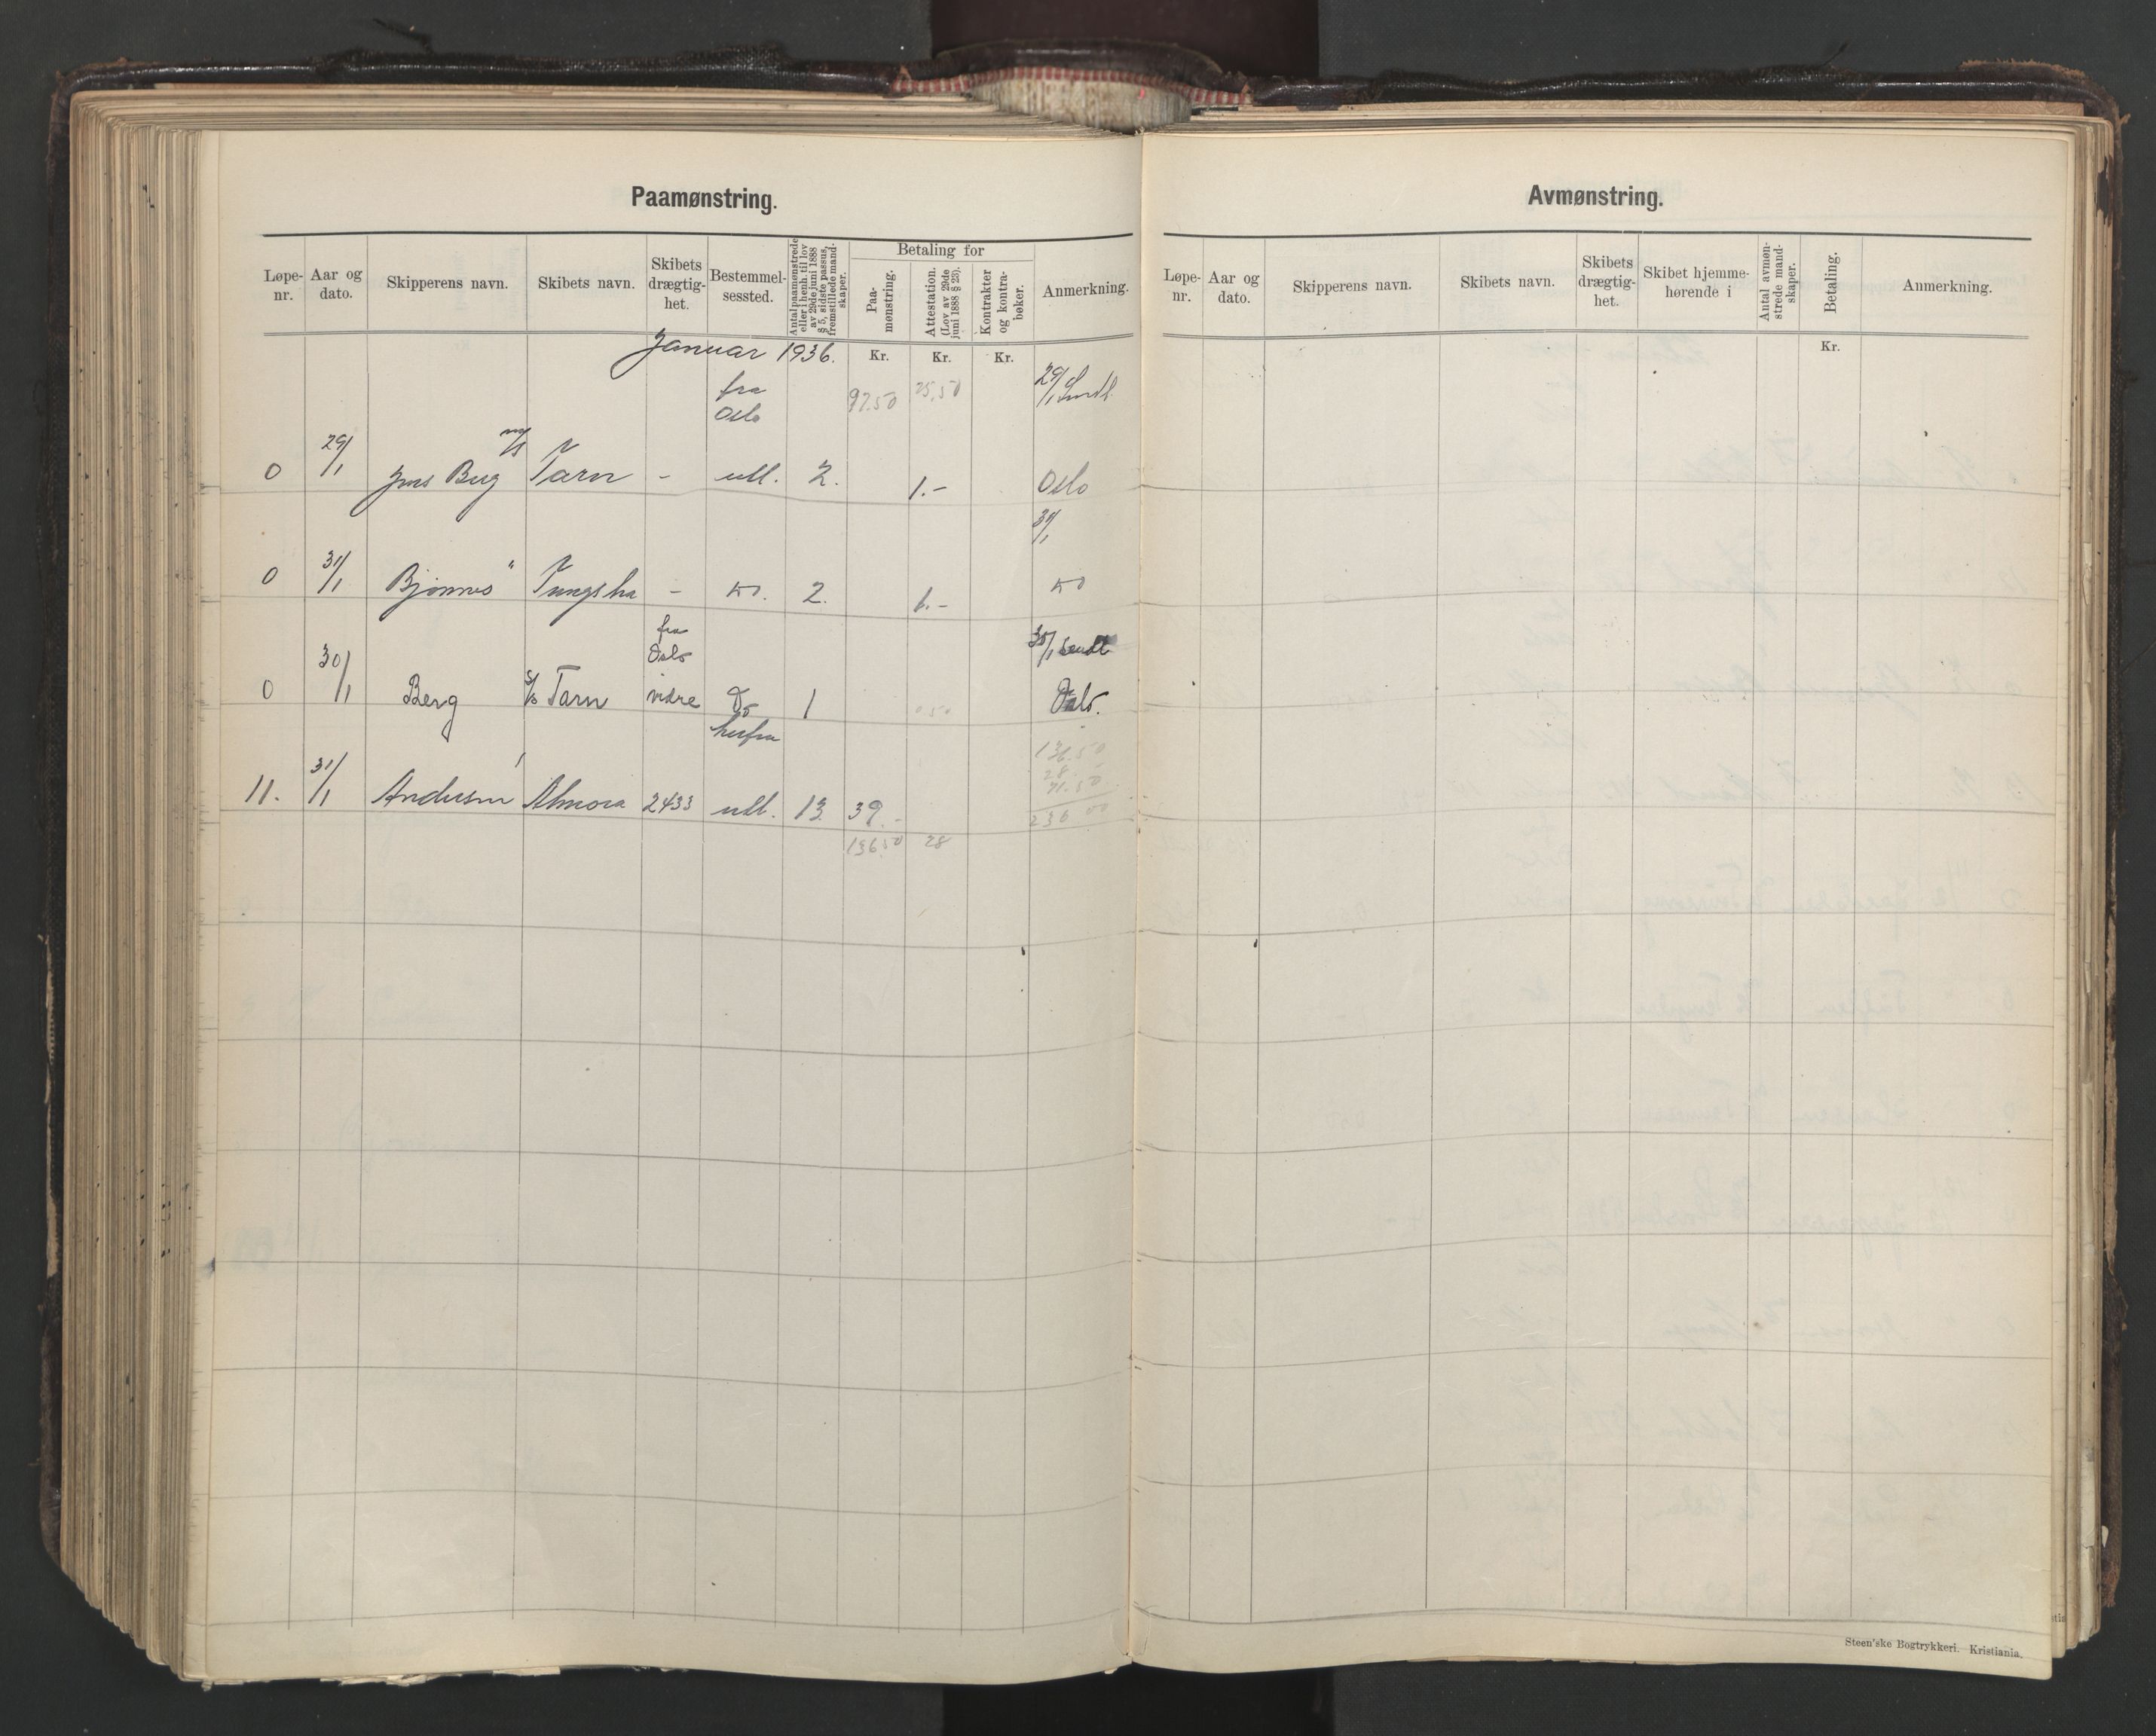 Paamønstring.
Løpe-nr. Aar og dato. Skipperens navn. Skibets navn. Skibets drægtig-het. Bestemmel-sessted. Antal paamønstrede eller i henh. til lov av 29de juni 1888 § 5, sidste passus, fremstillede mand-skaper. Betaling for Paa-mønstring. Attestation. (Lov av 29de juni 1888 § 23). Kontrakter og kontra-bøker. Anmerkning.
Januar 1936. Kr. Kr. Kr.
fra Oslo 97.50 25.50 29/1 Sendt
0 29/1 Jens Berg m/s Tarn - utl. 2. 1.- Oslo
31/1
0 31/1 Bjønnes " Tungsha - do. 2. 1.- do
fra Oslo 30/1 sendt
0 30/1 Berg s/s Tarn videre Do 1 0.50 Oslo.
herfra
136.50
28.-
71.50
11. 31/1 Andersen Almora 2433 utl. 13. 39.- 236 00
136.50 28
Avmønstring.
Løpe-nr. Aar og dato. Skipperens navn. Skibets navn. Skibets drægtig-het. Skibet hjemme-hørende i Antal avmøn-strede mand-skaper. Betaling. Anmerkning.
Kr.
Steen'ske Bogtrykkeri. Kristiania.